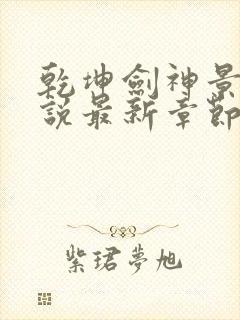 乾坤劍神景
說最新章節
紫珺夢旭